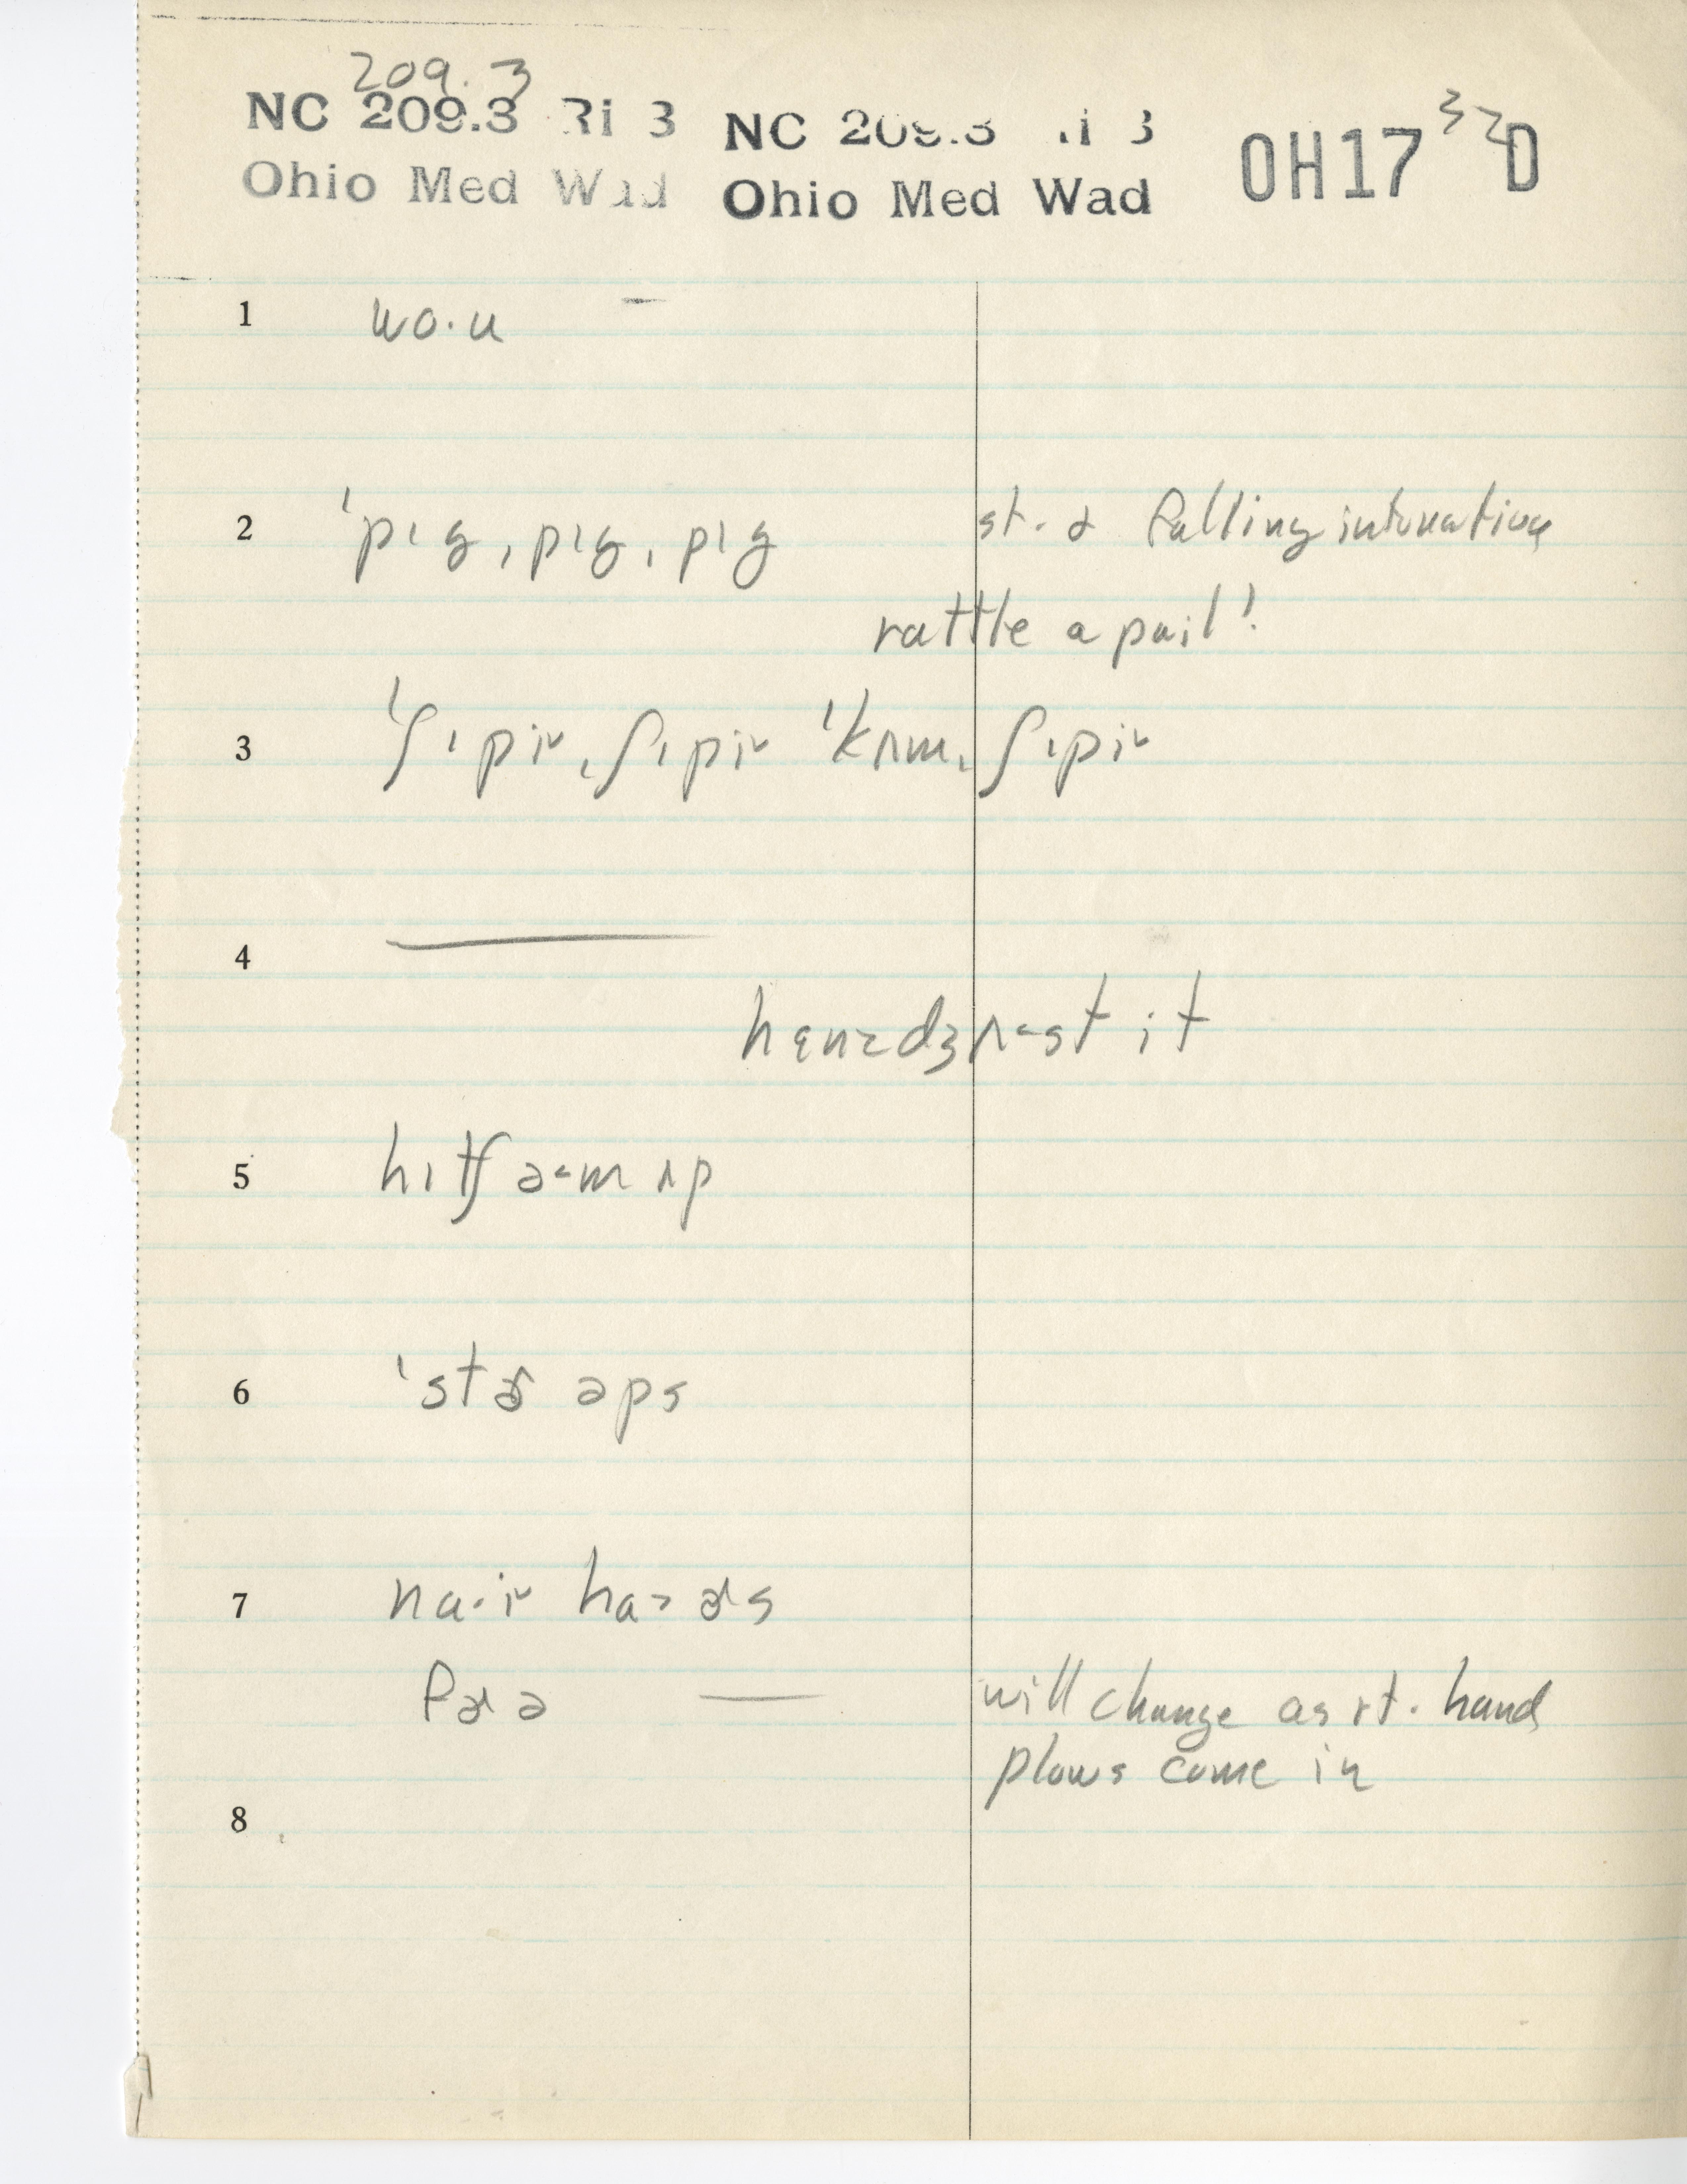 209.3
NC 209.3 Ri 3 NC 209.3 Ri 3 OH17 32 D
Ohio Med Wad Ohio Med Wad
1 wo·u
2 ˈpıg, pıg, pıg st. & falling intonation
rattle a pail!
3 ˈʃıpi˞, ʃıpi˞ ˈkʌm, ʃıpi˞
4
5 hıtʃ ə˂m ʌp
6 ˈstɚ əps
7
will change as rt. hand
plows come in
8